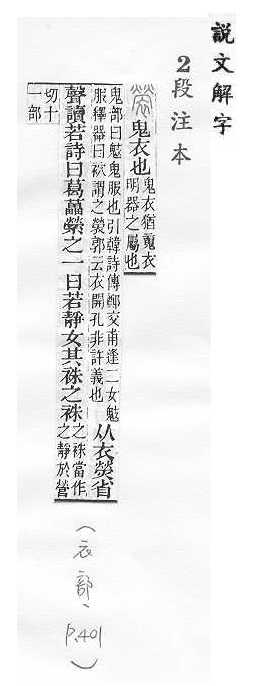 說文解字
2段注本
褮 鬼衣也
鬼衣猶䰟衣
明器之屬也
鬼部曰鬾鬼服也引韓詩傳鄭交甫逢二女鬾
服釋器曰袕謂之褮郭云衣開孔非許義也
从衣熒省
聲讀若詩曰葛藟縈之一曰若靜女其袾之袾
之袾當作
之靜於營
切十
一部
(衣部、p.401)